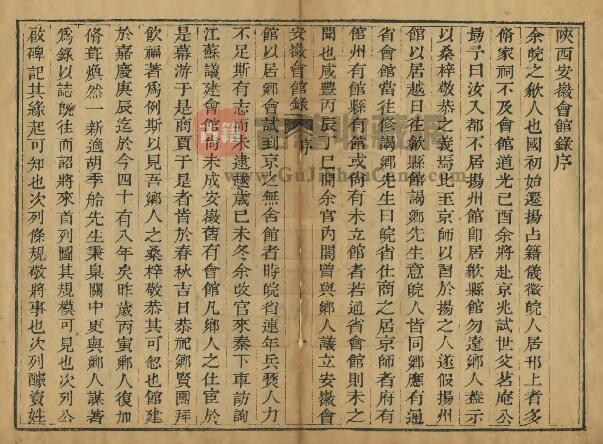 陝西安徽會館錄序
余皖之歙人也國初始遷揚占籍儀徵皖人居邗上者多
脩家祠不及會館道光己酉余將赴京兆試世父茗庵公
揚子曰汝入都不居揚州館即居歙縣館勿違鄉人盍示
以桑梓敬恭之義焉比至京師以習於揚之人遂假揚州
館以居越日往歙縣館謁鄉先生意皖人皆同鄉應有通
省會館當往脩謁鄉先生曰皖省仕商之居京師者府有
館州有館縣有館或尚有未立館者若通省會館則未之
聞也咸豐丙辰丁巳間余官內閣曾與鄉人議立安徽會
安徽會館錄 序
館以居鄉會試到京之無舍館者時皖省連年兵燹人力
不足斯有志而未逮越歲己未冬余改官來秦下車訪詢
江蘇議建會館尚未成安徽舊有會館凡鄉人之仕宦於
是幕游于是商賈于是者皆於春秋吉日恭祀鄉賢團拜
飲福著爲例斯以見吾鄉人之桑梓敬恭其可忽也館建
於嘉慶庚辰迄於今四十有八年矣昨歲丙寅鄉人復加
脩葺煥然一新適胡季船先生秉臬關中更與鄉人謀著
爲錄以誌旣往而詔將來首列圖其規模可見也次列公
啟碑記其緣起可知也次列條規敬將事也次列醵資姓
古籍
www.GuJiShouCang.com